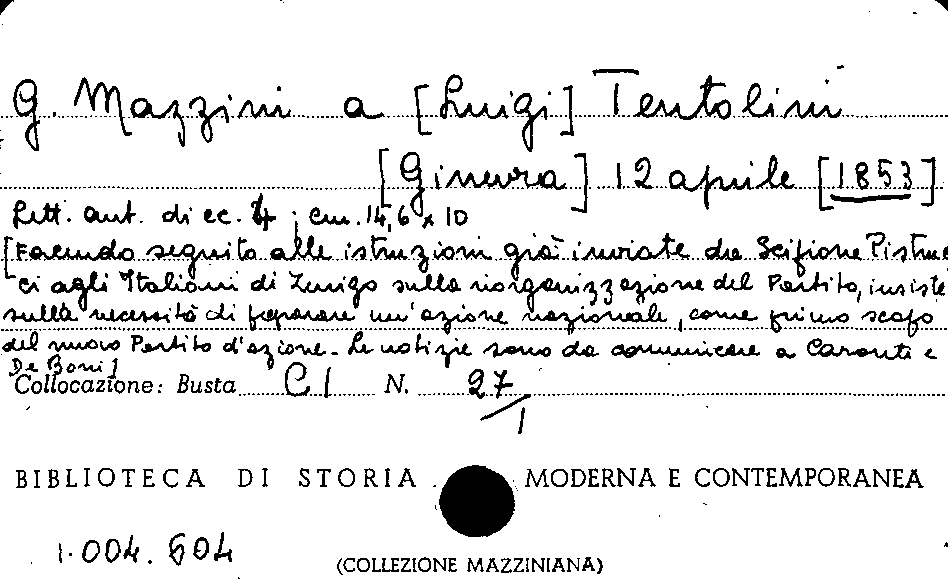 G. Mazzini a [Luigi] Tentolini
[Ginevra] 12 aprile [1853]
Lett. aut. di cc. 4; cm. 14,6 x 10
[Facendo seguito alle istruzioni già inviate da Scipione Pistruc
ci agli Italiani di Zurigo sulla riorganizzazione del Partito, insiste
sulla necessità di preparare un'azione nazionale, come primo scopo
del nuovo Partito d'azione. Le notizie sono da comunicare a Caronti e
De Boni]
Collocazione: Busta CI N. 27/1
BIBLIOTECA DI STORIA MODERNA E CONTEMPORANEA
1.004.604
(COLLEZIONE MAZZINIANA)